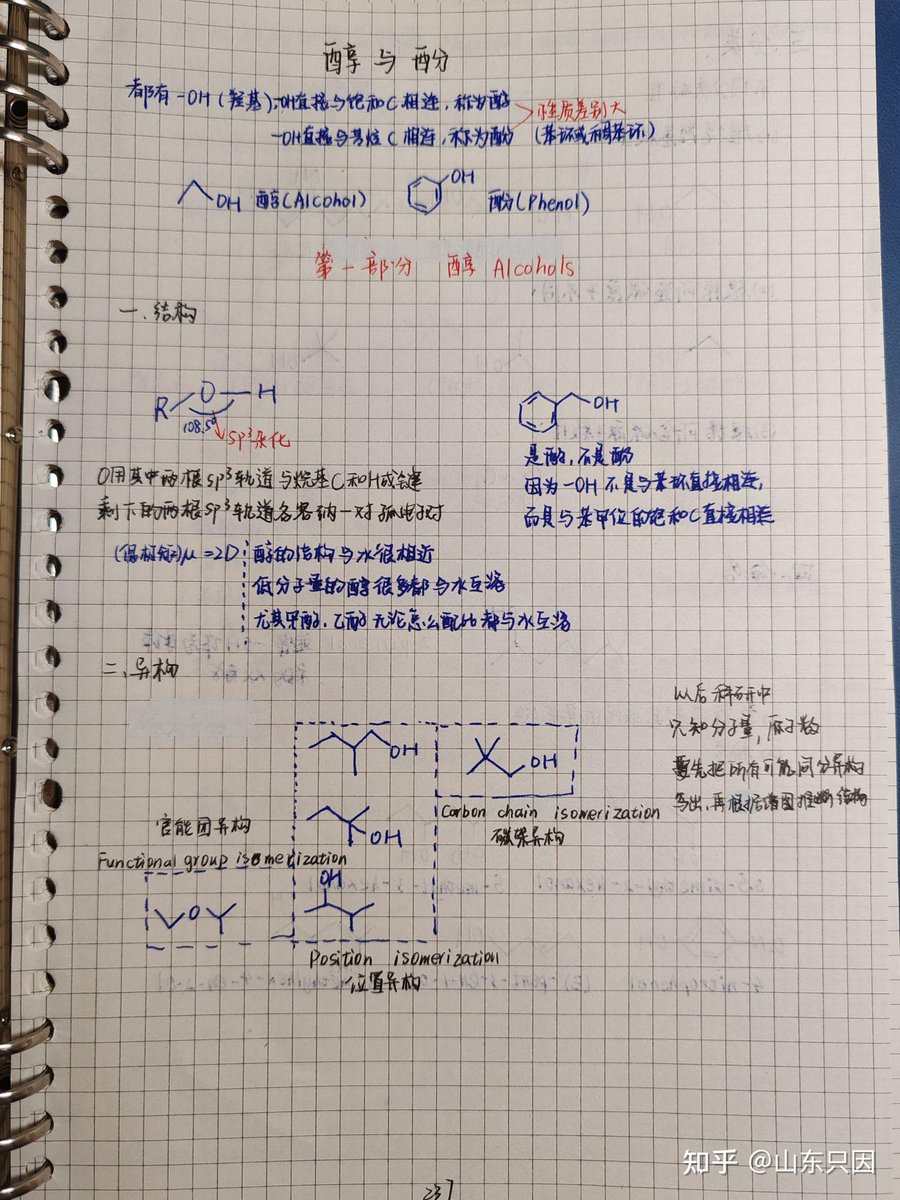 醇与酚
都有-OH(羟基),-OH直接与饱和C相连,称为醇
-OH直接与芳烃C相连,称为酚
性质差别大
(苯环或稠苯环)
OH 醇(Alcohol)
OH 酚(Phenol)
第一部分 醇 Alcohols
一、结构
R O H
108.5°
sp³杂化
OH
是醇,不是酚
因为-OH不是与苯环直接相连,
而是与苯甲位的饱和C直接相连
O用其中两根sp³轨道与烷基C和H成键
剩下的两根sp³轨道各容纳一对孤电子对
(偶极矩)μ=2D
醇的结构与水很相近
低分子量的醇很多都与水互溶
尤其甲醇,乙醇无论怎么配比都与水互溶
二、异构
以后科研中
只知分子量,原子数
要先把所有可能同分异构
写出,再根据谱图推断结构
OH
OH
Carbon chain isomerization
碳架异构
OH
官能团异构
Functional group isomerization
OH
O
Position isomerization
位置异构
237
知乎 @山东只因